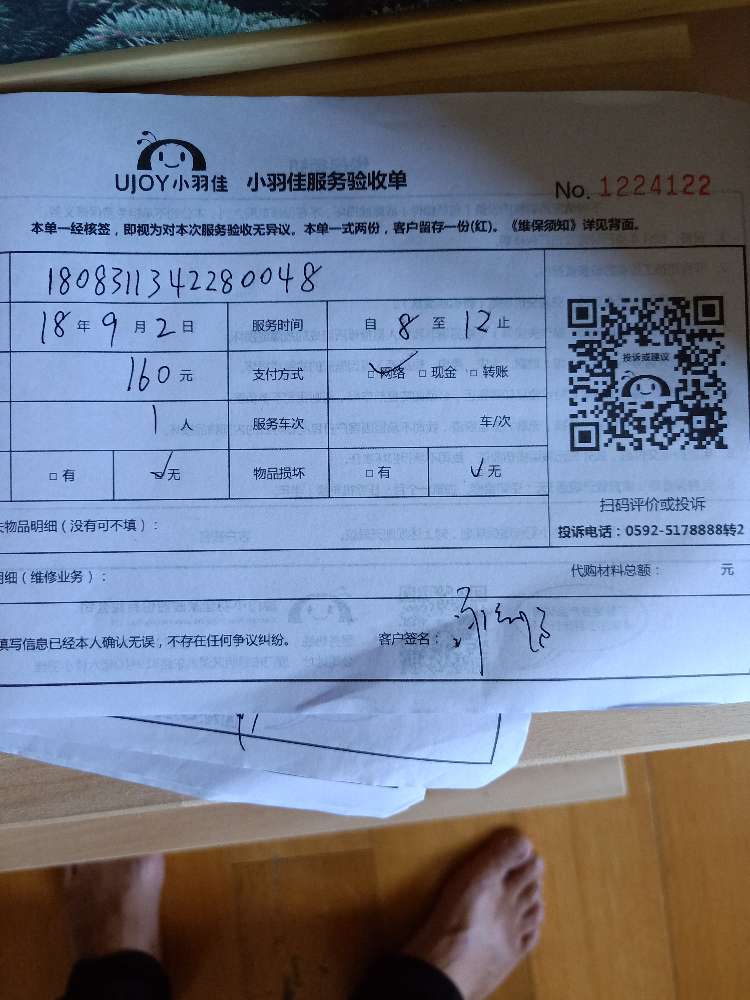 UJOY小羽佳 小羽佳服务验收单 No. 1224122
本单一经核签，即视为对本次服务验收无异议。本单一式两份，客户留存一份(红)。《维保须知》详见背面。
1808311342280048
18年9月2日 服务时间 自8至12止
160元 支付方式 □网络 □现金 □转账
投诉或建议
1人 服务车次 车/次
□有 □无 物品损坏 □有 无
扫码评价或投诉
物品明细（没有可不填）：
投诉电话：0592-5178888转2
明细（维修业务）：
代购材料总额： 元
填写信息已经本人确认无误，不存在任何争议纠纷。 客户签名：